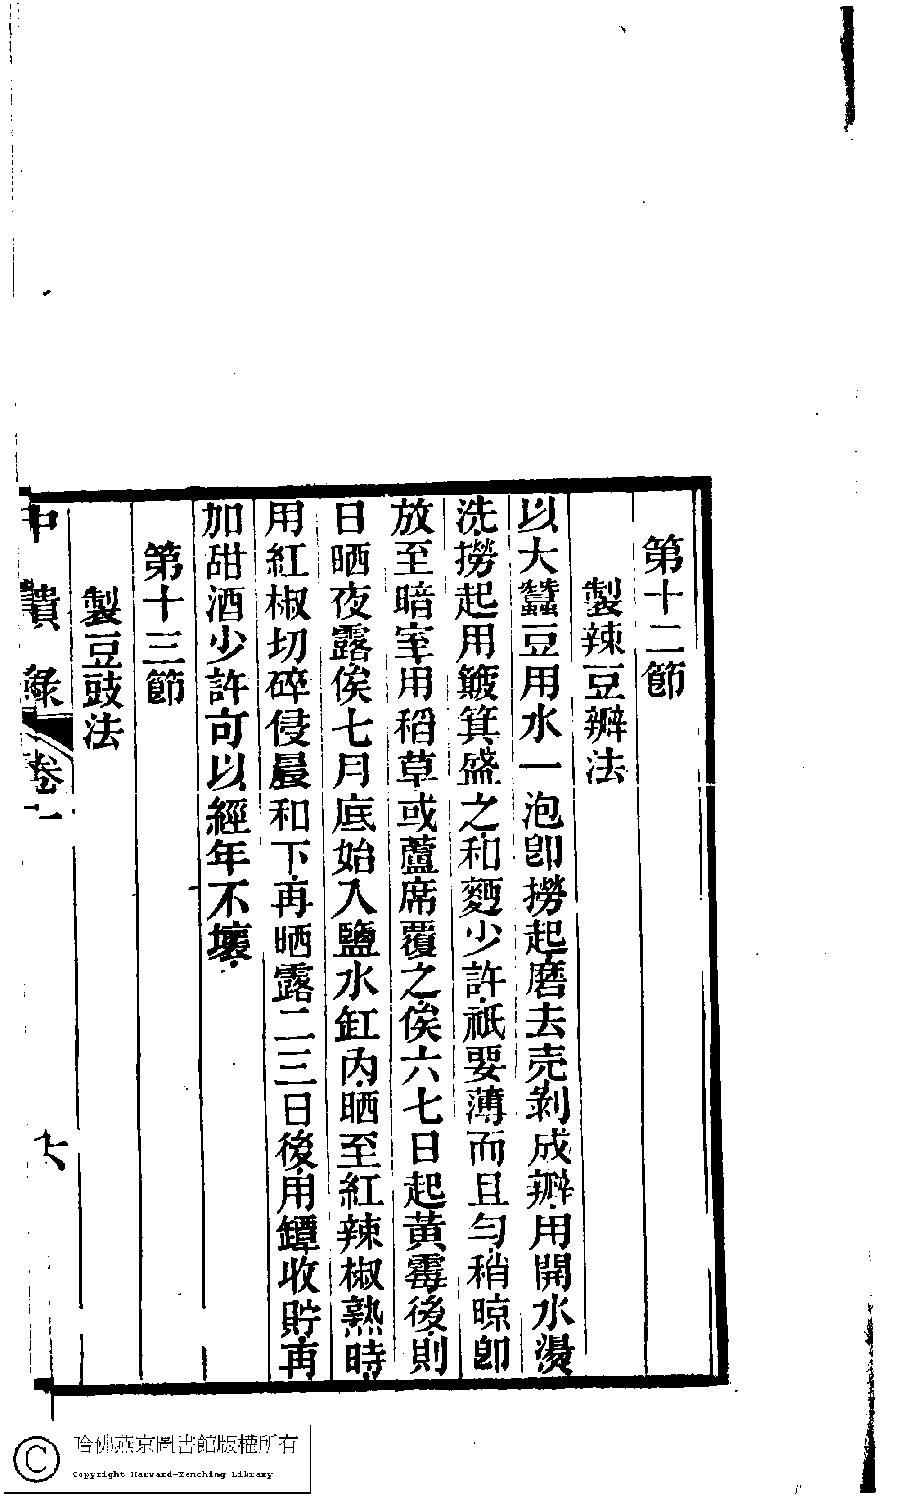 第十二節
製辣豆瓣法
以大蠶豆用水一泡卽撈起磨去壳剝成瓣用開水燙
洗撈起用簸箕盛之和麪少許祇要薄而且勻稍晾卽
放至暗室用稻草或蘆席覆之俟六七日起黃霉後則
日晒夜露俟七月底始入鹽水缸內晒至紅辣椒熟時
用紅椒切碎侵晨和下再晒露二三日後用罈收貯再
加甜酒少許可以經年不壞
第十三節
製豆豉法
中饋錄
卷一
六
哈佛燕京圖書館版權所有
Copyright Harvard-Yenching Library